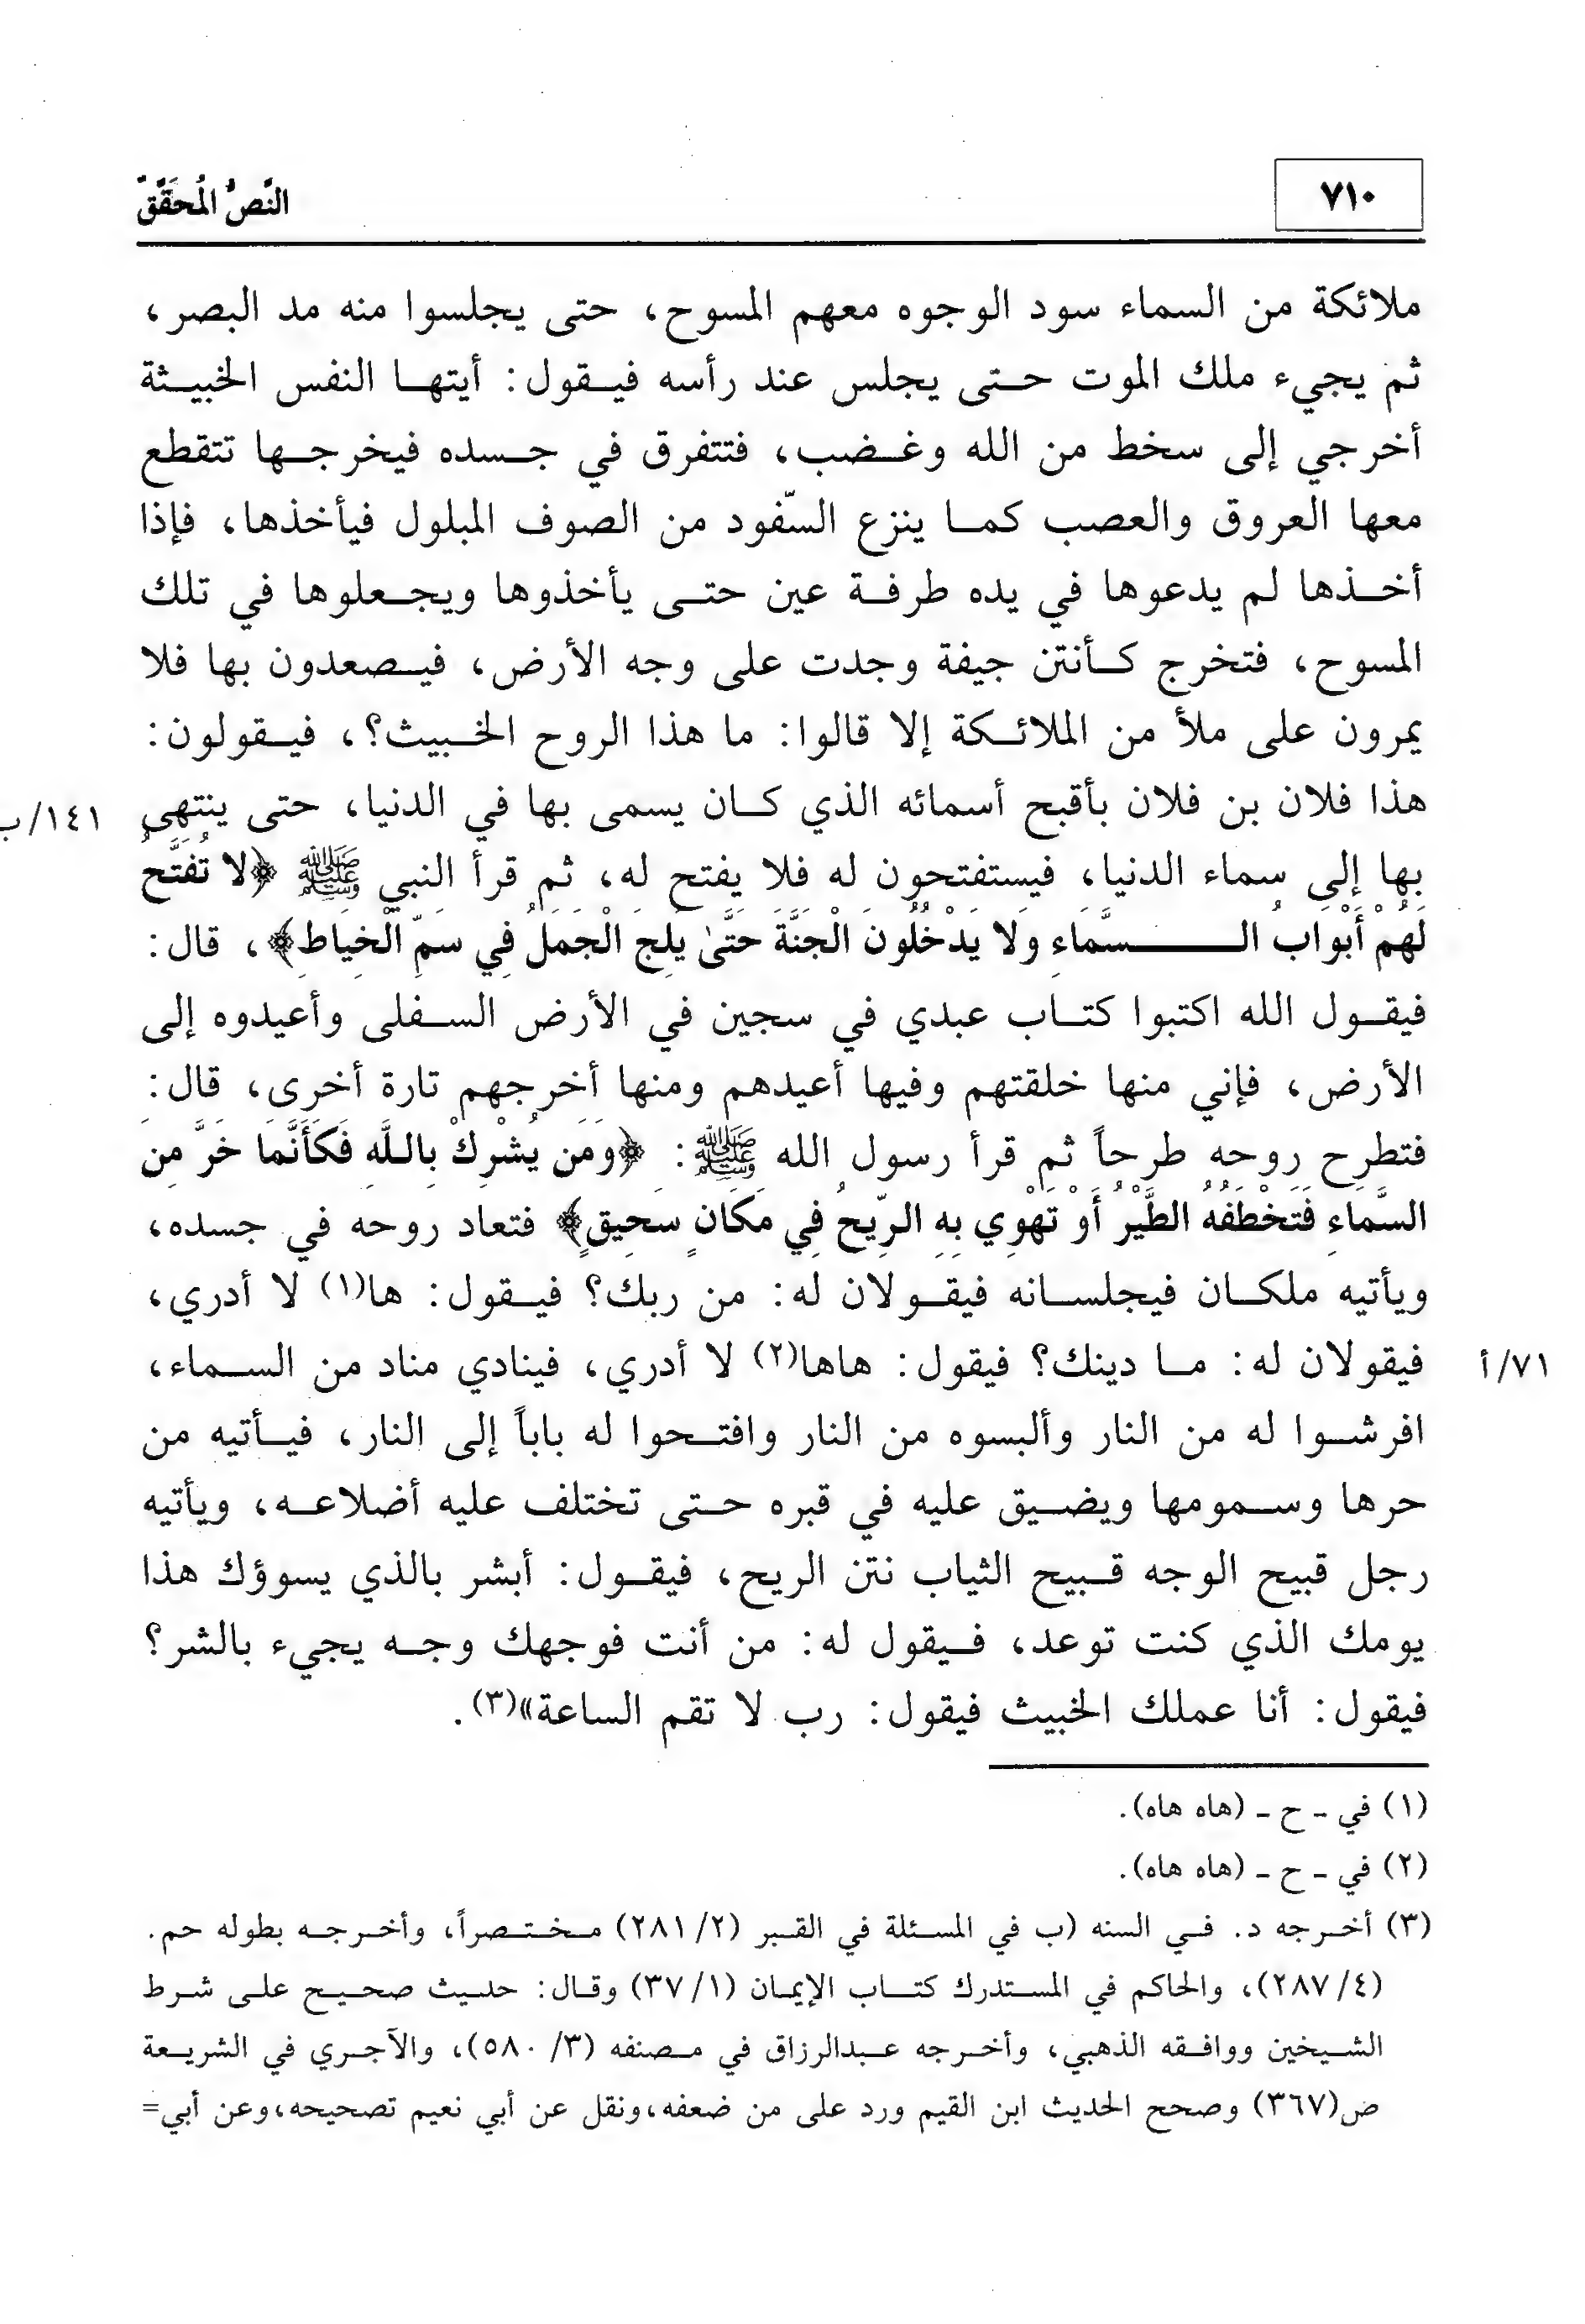 ٧١٠
النَّصُّ المُحَقَّقْ
ملائكة من السماء سود الوجوه معهم المسوح، حتى يجلسوا منه مد البصر،
ثم يجيء ملك الموت حتى يجلس عند رأسه فيقول: أيتها النفس الخبيثة
أخرجي إلى سخط من الله وغضب، فتتفرق في جسده فيخرجها تتقطع
معها العروق والعصب كما ينزع السّفود من الصوف المبلول فيأخذها، فإذا
أخذها لم يدعوها في يده طرفة عين حتى يأخذوها ويجعلوها في تلك
المسوح، فتخرج كأنتن جيفة وجدت على وجه الأرض، فيصعدون بها فلا
يمرون على ملأ من الملائكة إلا قالوا: ما هذا الروح الخبيث؟، فيقولون:
هذا فلان بن فلان بأقبح أسمائه الذي كان يسمى بها في الدنيا، حتى ينتهي
١٤١/ب
بها إلى سماء الدنيا، فيستفتحون له فلا يفتح له، ثم قرأ النبي ﷺ ﴿لا تُفَتَّحُ
لَهُمْ أَبْوَابُ السَّمَاءِ وَلا يَدْخُلُونَ الْجَنَّةَ حَتَّىٰ يَلِجَ الْجَمَلُ فِي سَمِّ الْخِيَاطِ﴾، قال:
فيقول الله اكتبوا كتاب عبدي في سجين في الأرض السفلى وأعيدوه إلى
الأرض، فإني منها خلقتهم وفيها أعيدهم ومنها أخرجهم تارة أخرى، قال:
فتطرح روحه طرحاً ثم قرأ رسول الله ﷺ: ﴿وَمَن يُشْرِكْ بِاللَّهِ فَكَأَنَّمَا خَرَّ مِنَ
السَّمَاءِ فَتَخْطَفُهُ الطَّيْرُ أَوْ تَهْوِي بِهِ الرِّيحُ فِي مَكَانٍ سَحِيقٍ﴾ فتعاد روحه في جسده،
ويأتيه ملكان فيجلسانه فيقولان له: من ربك؟ فيقول: ها(١) لا أدري،
فيقولان له: ما دينك؟ فيقول: هاها(٢) لا أدري، فينادي مناد من السماء،
٧١/أ
افرشوا له من النار وألبسوه من النار وافتحوا له باباً إلى النار، فيأتيه من
حرها وسمومها ويضيق عليه في قبره حتى تختلف عليه أضلاعه، ويأتيه
رجل قبيح الوجه قبيح الثياب نتن الريح، فيقول: أبشر بالذي يسوؤك هذا
يومك الذي كنت توعد، فيقول له: من أنت فوجهك وجه يجيء بالشر؟
فيقول: أنا عملك الخبيث فيقول: رب لا تقم الساعة»(٣).
(١) في ـ ح ـ (هاه هاه).
(٢) في ـ ح ـ (هاه هاه).
(٣) أخرجه د. في السنه (ب في المسئلة في القبر (٢/ ٢٨١) مختصراً، وأخرجه بطوله حم.
(٤/ ٢٨٧)، والحاكم في المستدرك كتاب الإيمان (١/ ٣٧) وقال: حديث صحيح على شرط
الشيخين ووافقه الذهبي، وأخرجه عبدالرزاق في مصنفه (٣/ ٥٨٠)، والآجري في الشريعة
ض(٣٦٧) وصحح الحديث ابن القيم ورد على من ضعفه،ونقل عن أبي نعيم تصحيحه،وعن أبي=